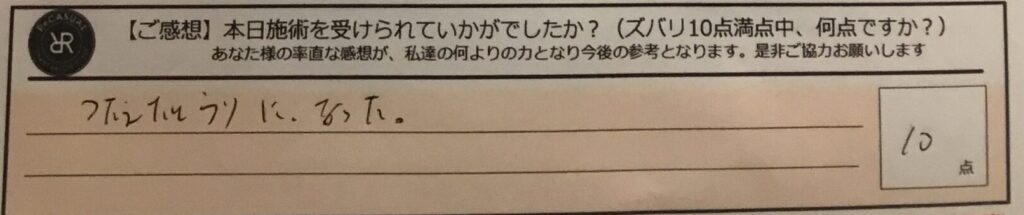 RR
【ご感想】本日施術を受けられていかがでしたか？（ズバリ10点満点中、何点ですか？）
あなた様の率直な感想が、私達の何よりの力となり今後の参考となります。是非ご協力お願いします
つたえたとうりに、なった。
10
点